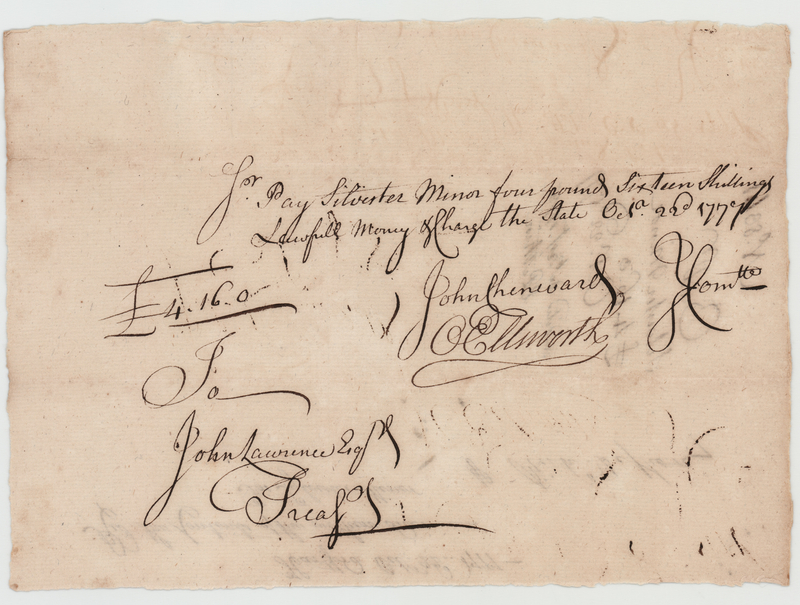 Sr Pay Silvester Minor four pound Sixteen Shillings
Lawfull Money & Charge the State Octr 22d
£4.16.0
John Chenevard
OEllsworth
Comtte
To
John Lawrence Esqr
Treasr